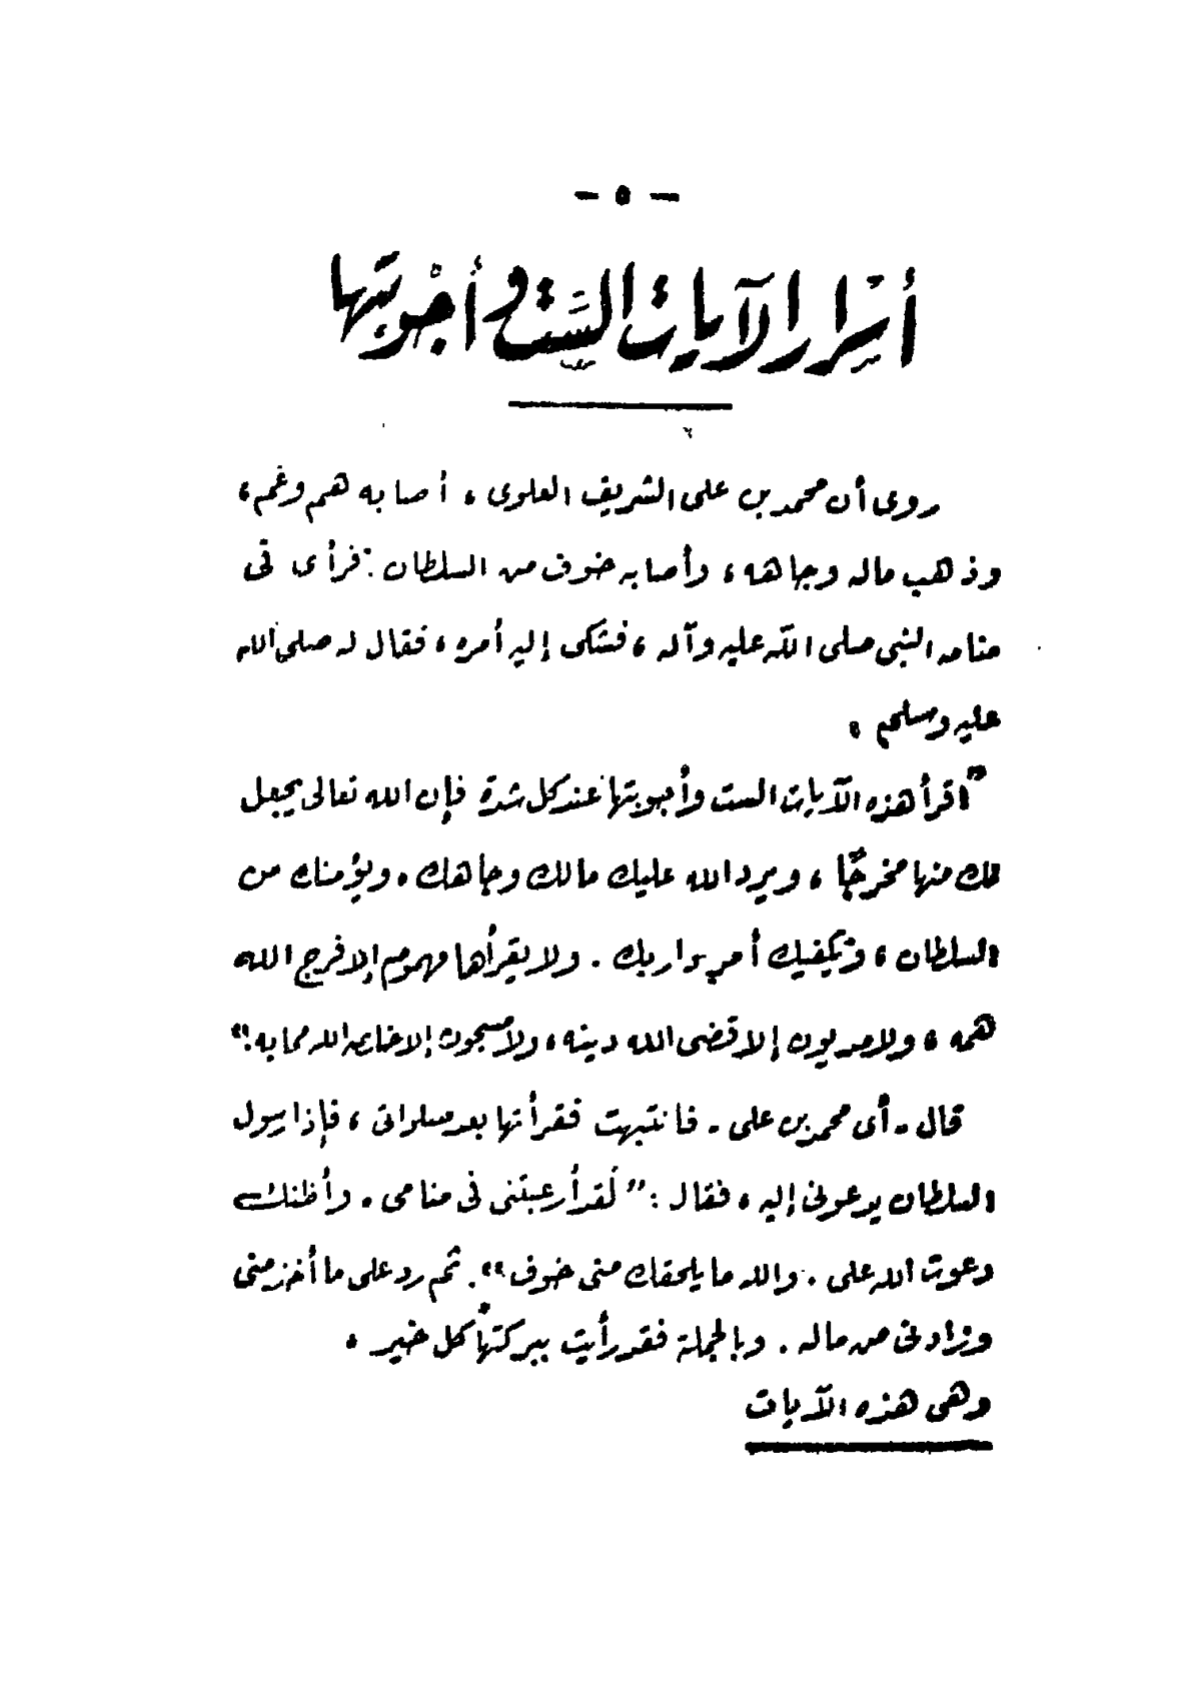 - ٥ -
أسْرار الآيات السَّت وأجْوبتها
روى أن محمد بن على الشريف العلوى ، أصابه هم وغم ،
وذهب ماله وجاهه ، وأصابه خوف من السلطان . فرأى فى
منامه النبى صلى الله عليه وآله ، فشكى إليه أمره ، فقال له صلى الله
عليه وسلم :
" اقرأ هذه الآيات الست وأجوبتها عند كل شدة فإن الله تعالى يجعل
لك منها مخرجًا ، ويرد الله عليك مالك وجاهك . ويؤمنك من
السلطان ، وتكفيك أمر داريك . ولا يقرأها مهموم إلا فرج الله
همه ، ولا مديون إلا قضى الله دينه ، ولا مسجون إلا خلصه الله مما به . "
قال - أى محمد بن على - فانتبهت فقرأتها بعد صلواتى ، فإذا رسول
السلطان يدعونى إليه ، فقال : " لَقد أرعبتنى فى منامى . وأظنك
دعوت الله على . والله ما يلحقك منى خوف " . ثم رد على ما أخذ منى
وزادنى من ماله . وبالجملة فقد رأيت ببركتها كل خير .
وهى هذه الآيات